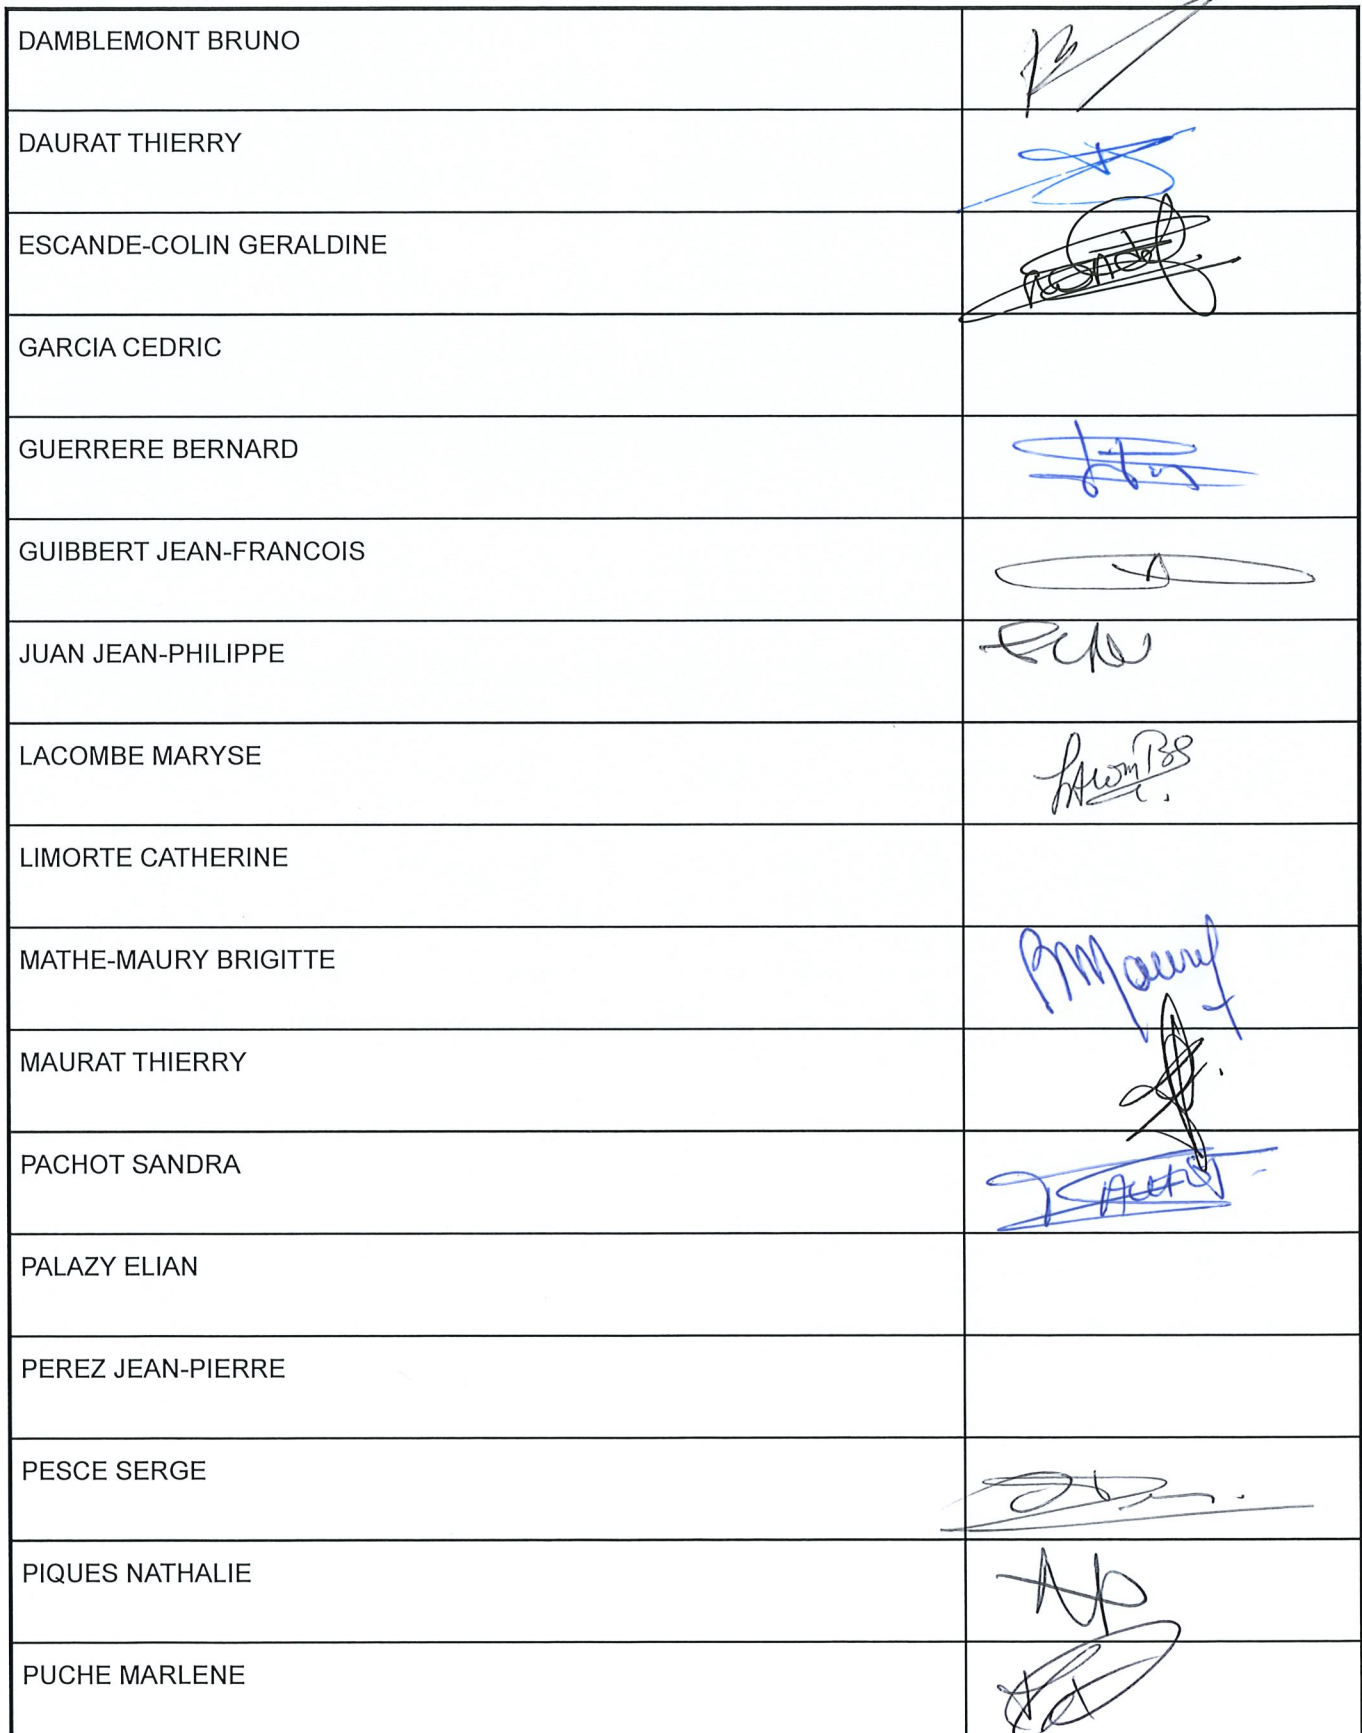 DAMBLEMONT BRUNO
DAURAT THIERRY
ESCANDE-COLIN GERALDINE
GARCIA CEDRIC
GUERRERE BERNARD
GUIBBERT JEAN-FRANCOIS
JUAN JEAN-PHILIPPE
LACOMBE MARYSE
LIMORTE CATHERINE
MATHE-MAURY BRIGITTE
MAURAT THIERRY
PACHOT SANDRA
PALAZY ELIAN
PEREZ JEAN-PIERRE
PESCE SERGE
PIQUES NATHALIE
NP
PUCHE MARLENE